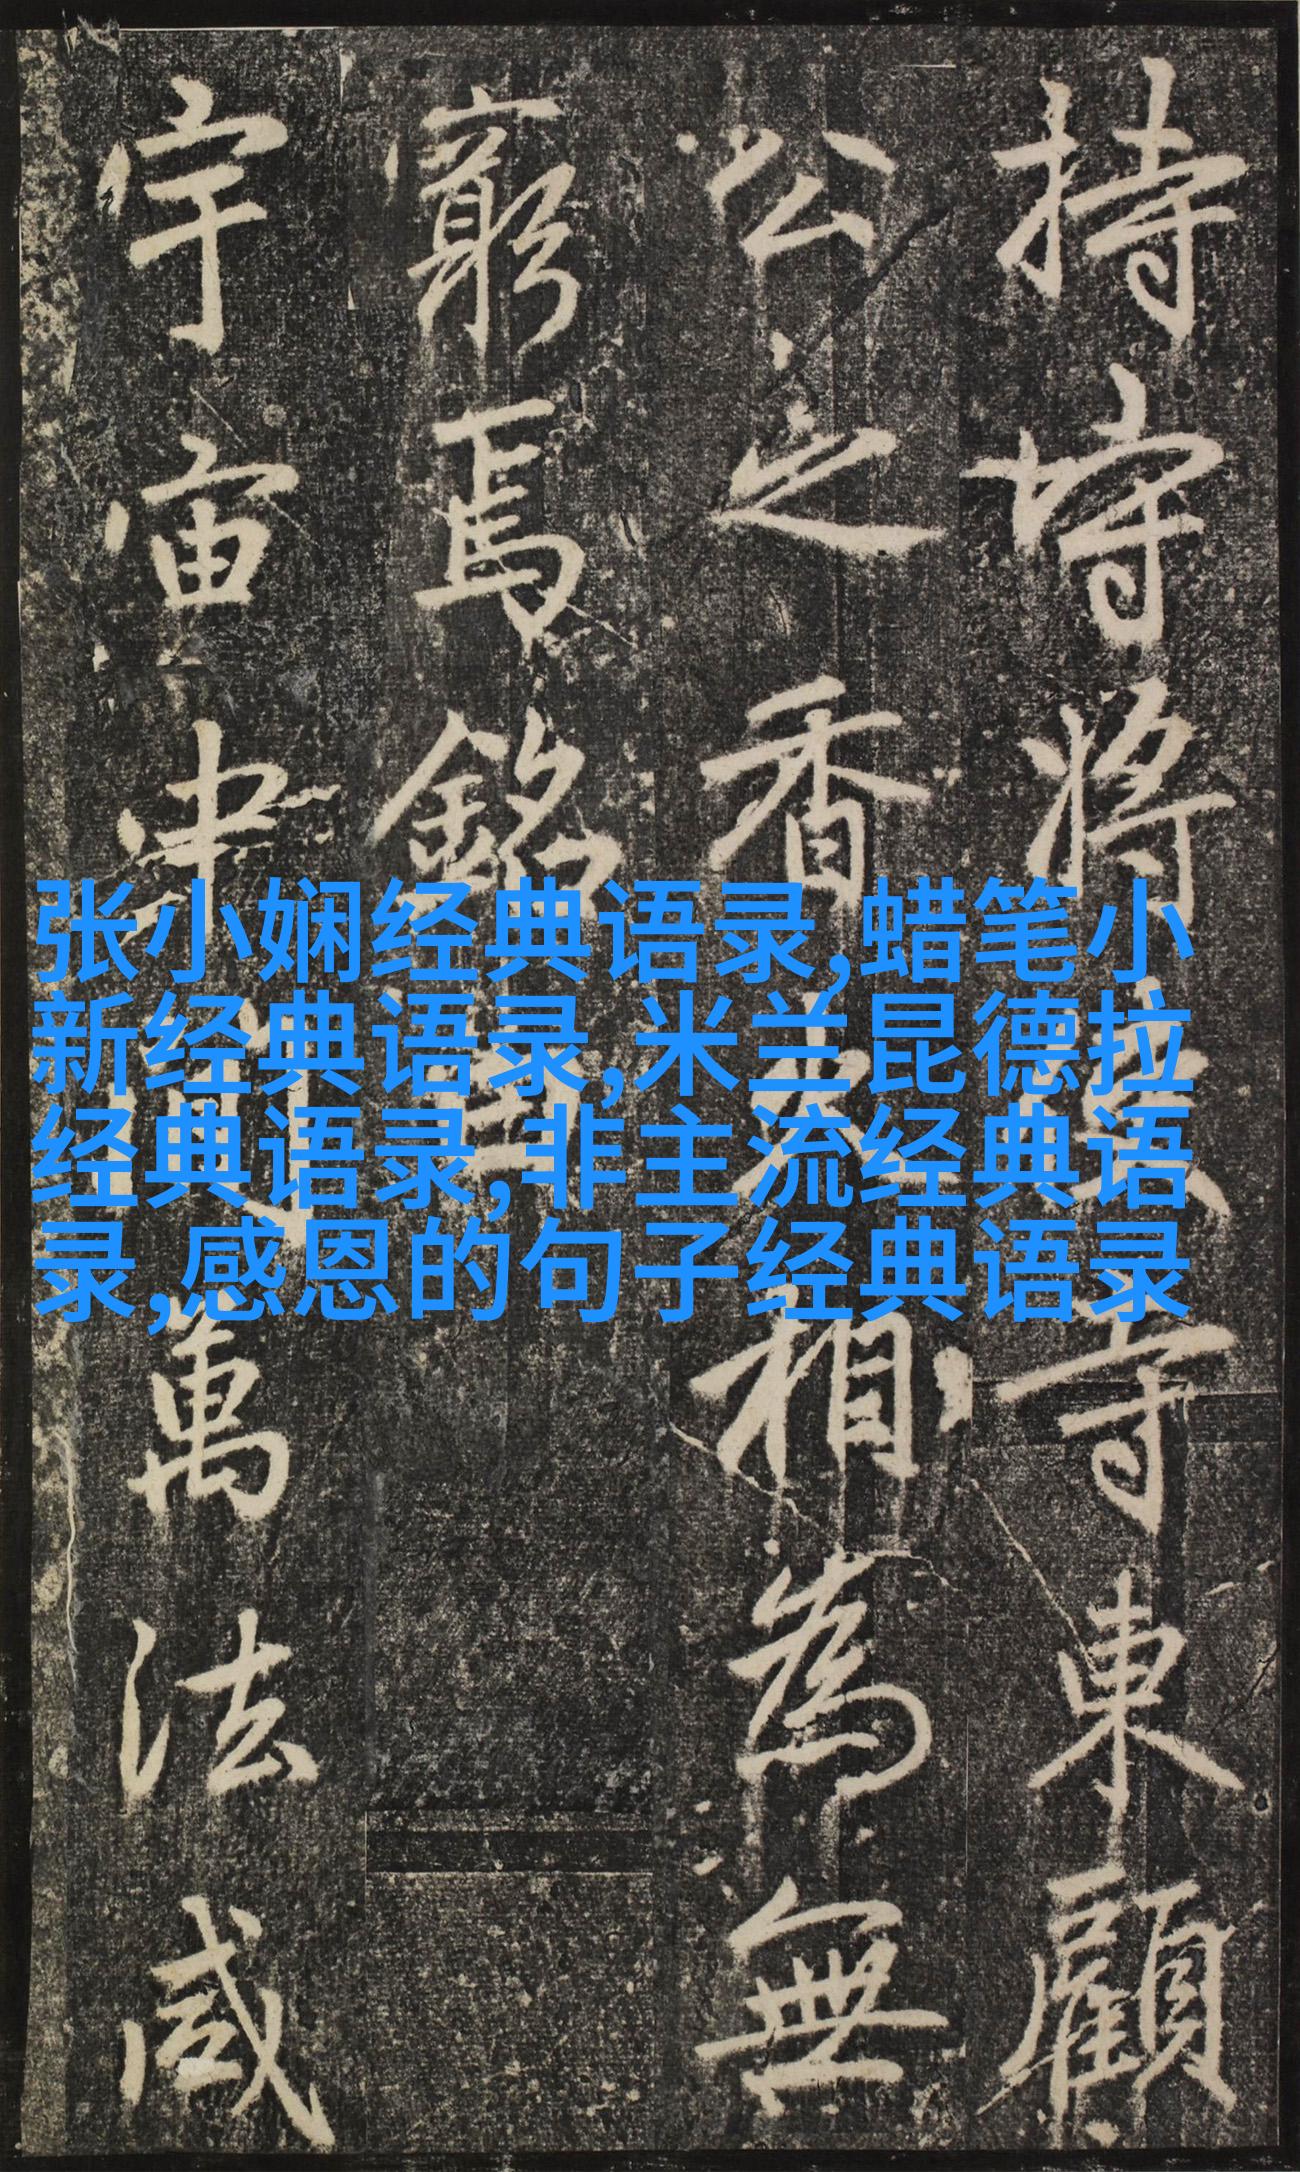 张小娴经典语录,蜡笔小
新经典语录,米兰昆德拉
经典语录,非主流经典语
录,感恩的句子经典语录
持將寺東顧
公之香火相為無
窮焉銘曰
宇宙萬法咸